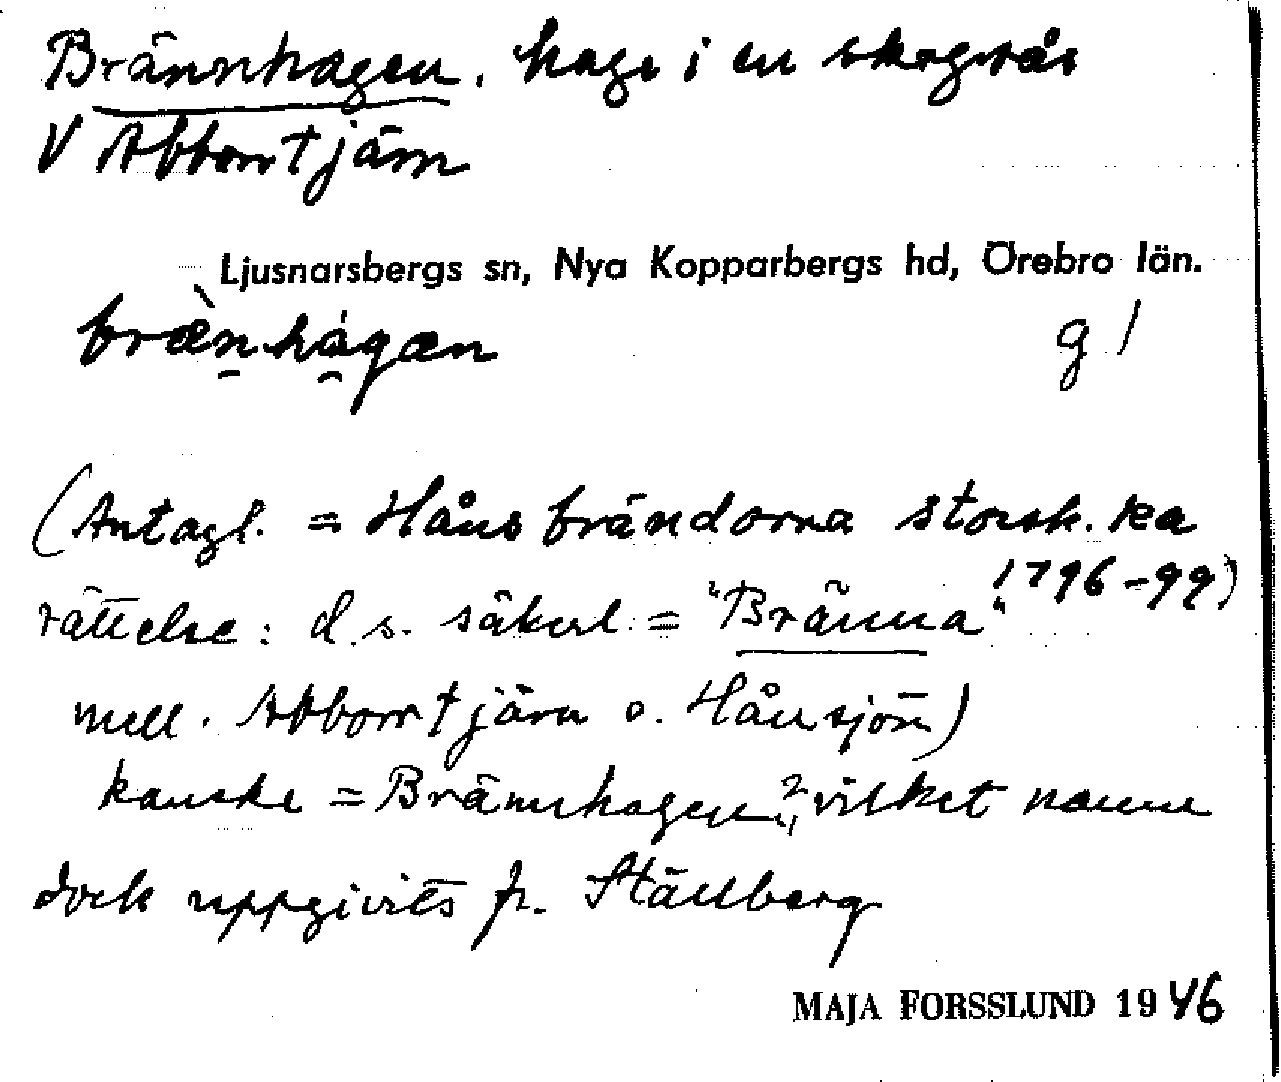 Brännhagen. hage i en skogsås
V Abborrtjärn
Ljusnarsbergs sn, Nya Kopparbergs hd, Örebro län.
bræ̀n.hágæn g /
(Antagl. = Håns brändorna storsk. ka
1796-99)
rättelse: d.s. säkerl. = "Bränna"
mell. Abborrtjärn o. Hånsjön)
kanske = Brännhagen?, vilket namn
dock uppgivits fr. Ställberg
MAJA FORSSLUND 1946